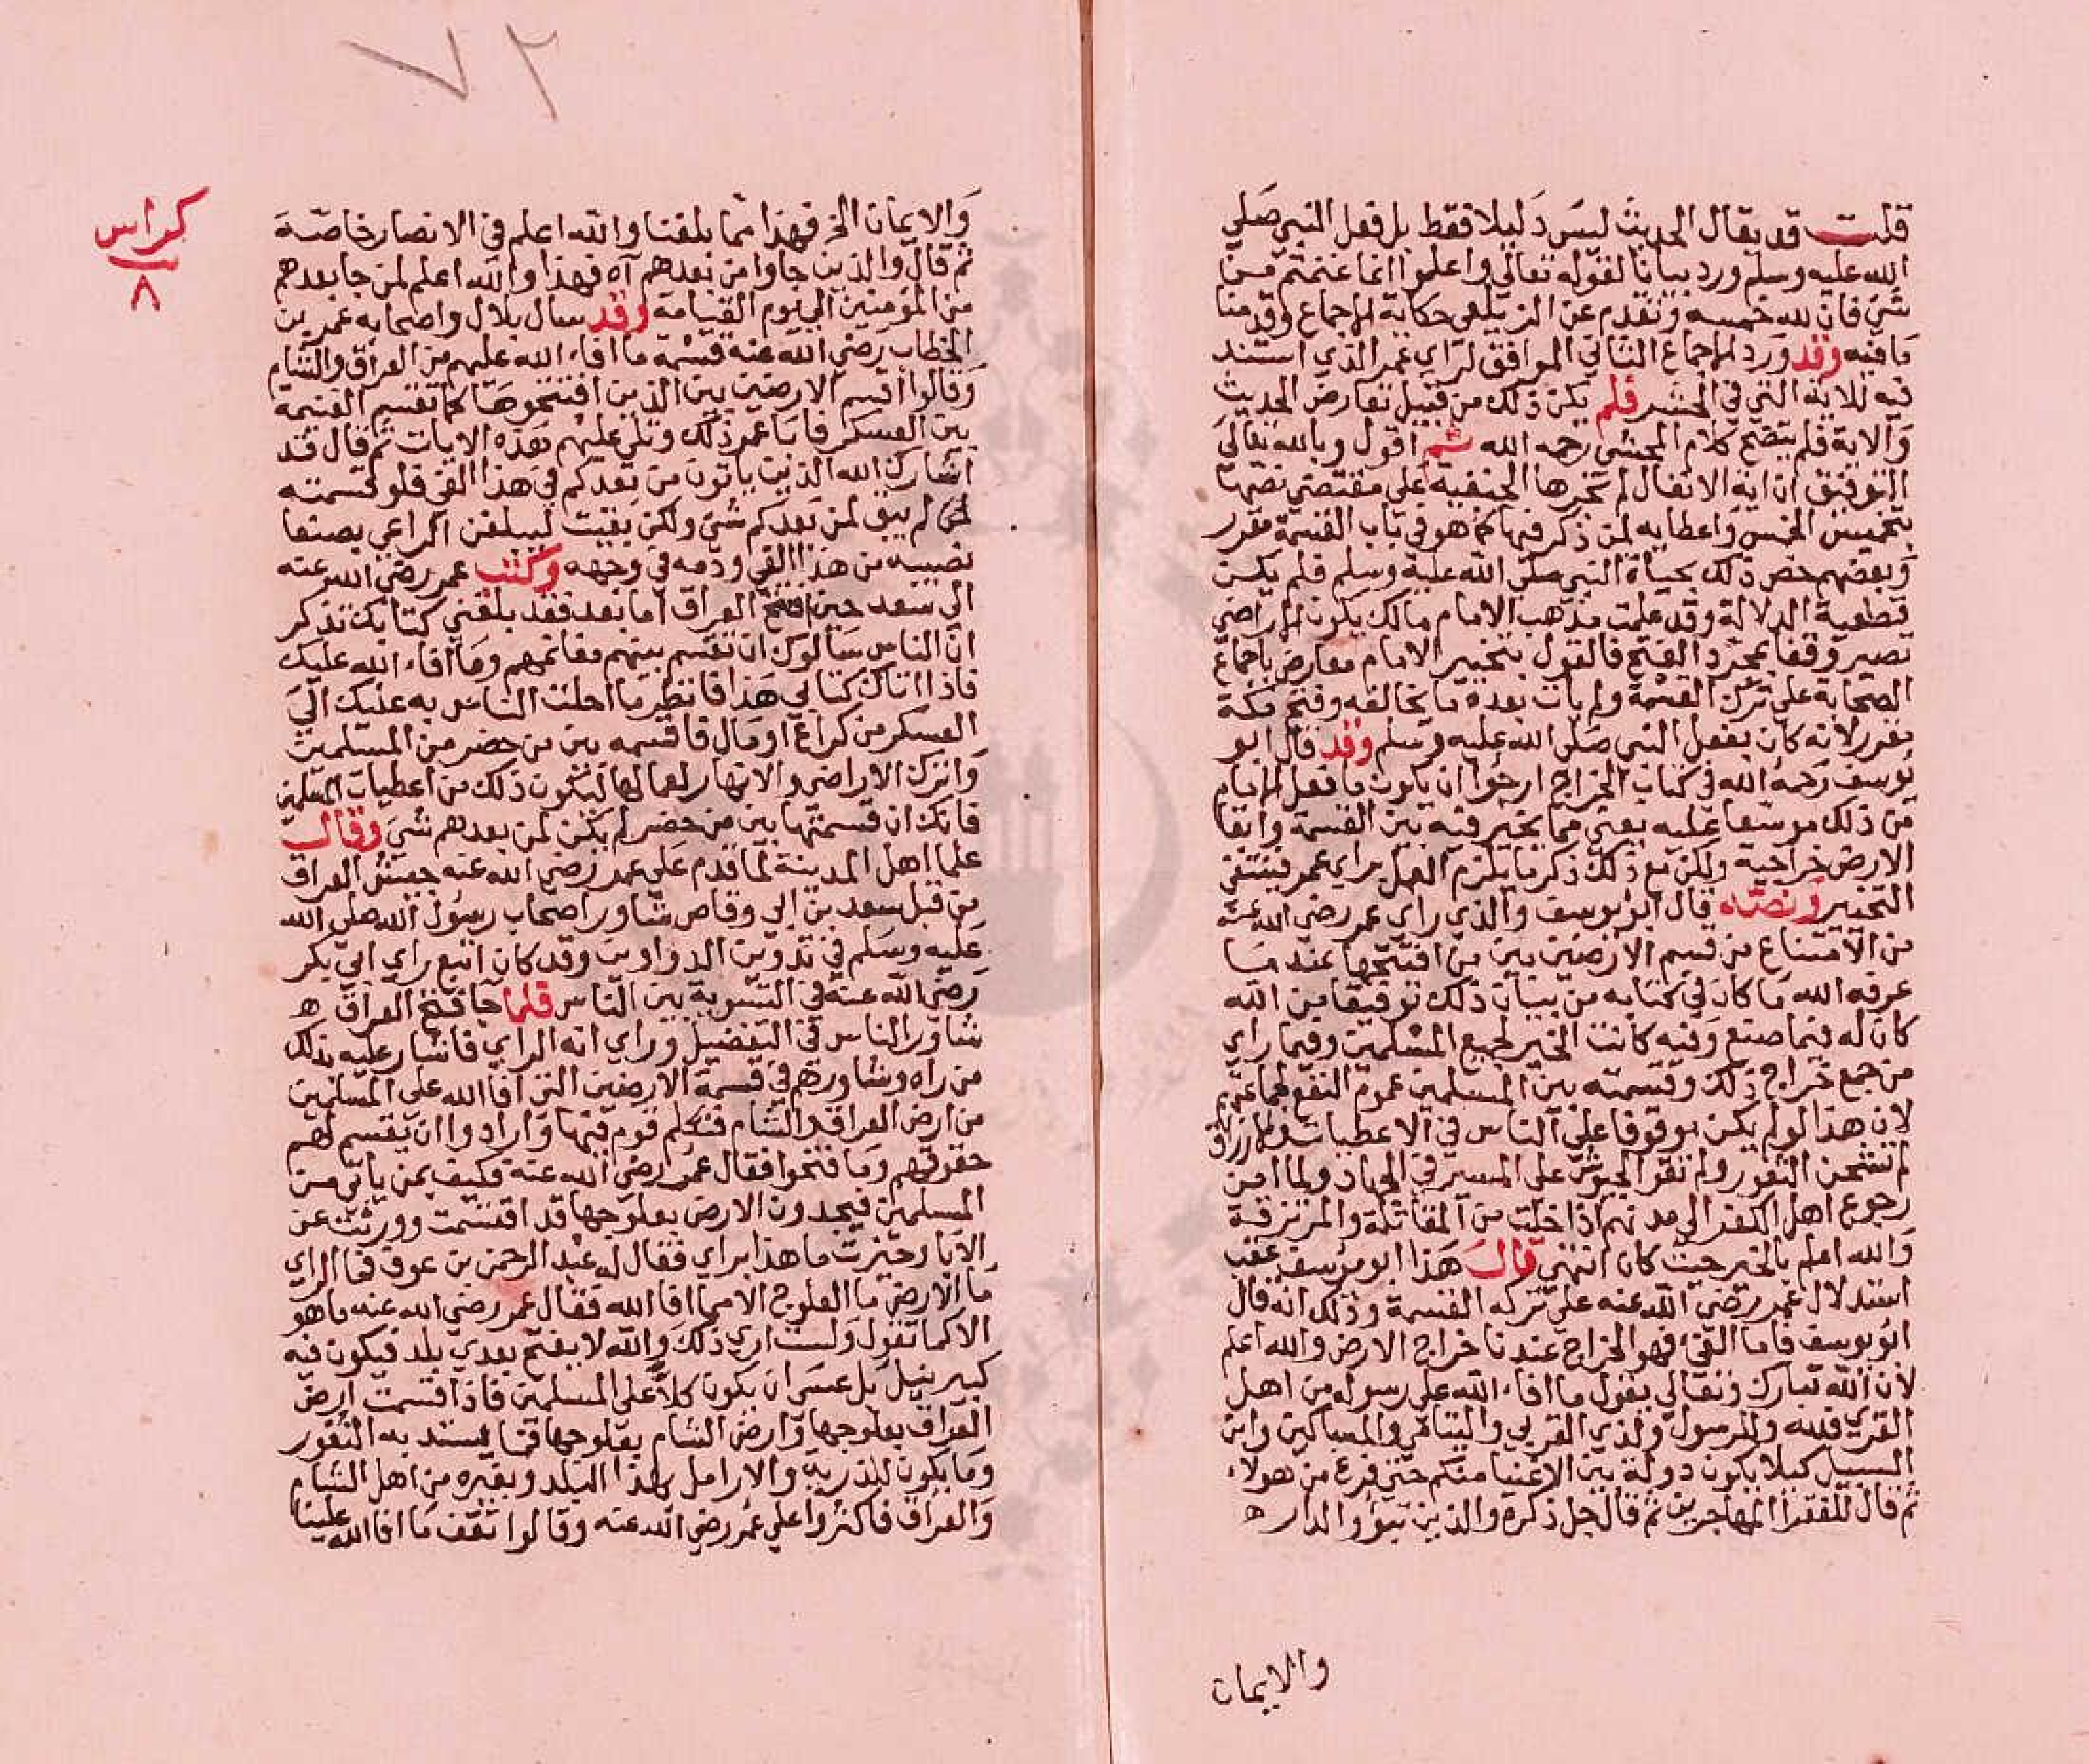 قلت قد يقال الحديث ليس دليلا فقط بل فعل النبي صلى
الله عليه وسلم ورد بيانا لقوله تعالى واعلموا انما غنمتم من
شئ فان لله خمسه وتقدم عن الزيلعي حكاية الاجماع وقدمنا
ما فيه وقد ورد الاجماع الثاني الموافق لراي عمر الذي استند
فيه للاية التي في الحشر فلم يكن ذلك من قبيل تعارض الحديث
والاية فلم يتضح كلام المحشي رحمه الله ثم اقول وبالله تعالى
التوفيق ان اية الانفال لم تجرها الحنفية على مقتضى نصها
بتخميس الخمس واعطايه لمن ذكر فيها كما هو في باب القسمة مقرر
وبعضهم خص ذلك بحياة النبي صلى الله عليه وسلم فلم يكن
قطعية الدلالة وقد علمت مذهب الامام مالك بكون الاراضي
تصير وقفا بمجرد الفتح فالقول بتخيير الامام معارض باجماع
الصحابة على ترك القسمة ولم يات بعده ما يخالفه وفتح مكة
مقرر لانه كان بفعل النبي صلى الله عليه وسلم وقد قال ابو
يوسف رحمه الله في كتاب الخراج ارجوا ان يكون ما فعل الامام
من ذلك موسعا عليه يعني مما يخير فيه بين القسمة وابقا
الارض خراجية ولكن مع ذلك ذكر ما يلزم العمل براي عمر فينتفي
التخيير ونصه قال ابو يوسف والذي راي عمر رضي الله عنه
من الامتناع من قسم الارضين بين من افتتحها عند ما
عرفه الله ما كان في كتابه من بيان ذلك توفيقا من الله
كان له فيما صنع وفيه كانت الخير لجميع المسلمين وفيما راي
من جمع خراج ذلك وقسمته بين المسلمين عموم النفع لجماعتهم
لان هذا لو لم يكن موقوفا على الناس في الاعطيات والارزاق
لم تشحن الثغور ولم تقو الجيوش على المسير في الجهاد ولما امن
رجوع اهل الكفر الى مدنهم اذا خلت من المقاتلة والمرتزقة
والله اعلم بالخير حيث كان انتهى قال هذا ابو يوسف عقب
استدلال عمر رضي الله عنه على تركه القسمة وذلك انه قال
ابو يوسف فاما الفئ فهو الخراج عندنا خراج الارض والله اعلم
لان الله تبارك وتعالى يقول ما افاء الله على رسوله من اهل
القرى فلله وللرسول ولذي القربى واليتامى والمساكين وابن
السبيل كيلا يكون دولة بين الاغنيا منكم حتى فرغ من هولاء
ثم قال للفقرا المهاجرين ثم قال جل ذكره والذين تبوؤا الدار ه
والايمان
٧٢
كراس
٨
والايمان الخ فهذا مما بلغنا والله اعلم في الانصار خاصة
ثم قال والذين جاوا من بعدهم آه فهذا والله اعلم لمن جا بعدهم
من المؤمنين الى يوم القيامة وقد سال بلال واصحابه عمر بن
الخطاب رضي الله عنه قسمة ما افاء الله عليهم من العراق والشام
وقالوا اقسم الارضين بين الذين افتتحوها كما تقسم الغنيمة
بين العسكر فابا عمر ذلك وتلى عليهم هذه الايات ثم قال قد
اشارك الله الذين ياتون من بعدكم في هذا الفي فلو قسمته
لم يبق لمن بعدكم شئ ولكن بقيت ليبلغن الراعي بصنعا
نصيبه من هذا الفي ودمه في وجهه وكتب عمر رضي الله عنه
الى سعد حين افتتح العراق اما بعد فقد بلغني كتابك تذكر
ان الناس سالوك ان تقسم بينهم مغانمهم وما افاء الله عليك
فاذا اتاك كتابي هذا فانظر ما اجلب الناس به عليك الى
العسكر من كراع او مال فاقسمه بين من حضر من المسلمين
واترك الاراضي والانهار لعمالها ليكون ذلك من اعطيات المسلمين
فانك ان قسمتها بين من حضر لم يكن لمن بعدهم شئ وقال
علما اهل المدينة لما قدم على عمر رضي الله عنه جيش العراق
من قبل سعد بن ابي وقاص شاور اصحاب رسول الله صلى الله
عليه وسلم في تدوين الدواوين وقد كان اتبع راي ابي بكر
رضي الله عنه في التسوية بين الناس فلما جا فتح العراق ه
شاور الناس في التفضيل وراي انه الراي فاشار عليه بذلك
من راه وشاورهم في قسمة الارضين التي افا الله على المسلمين
من ارض العراق والشام فتكلم قوم فيها وارادوا ان يقسم لهم
حقوقهم وما فتحوا فقال عمر رضي الله عنه فكيف بمن ياتي من
المسلمين فيجدون الارض بعلوجها قد اقتسمت وورثت عن
الابا وحيزت ما هذا براي فقال له عبد الرحمن بن عوف فما الراي
ما الارض ما العلوج الا مما افا الله فقال عمر رضي الله عنه ما هو
الا كما تقول ولست ارى ذلك والله لا يفتح بعدي بلد فيكون فيه
كبير نيل بل عسى ان يكون كلا على المسلمين فاذا قسمت ارض
العراق بعلوجها وارض الشام بعلوجها فما يسد به الثغور
وما يكون للذرية والارامل بهذا البلد وبغيره من اهل الشام
والعراق فاكثروا على عمر رضي الله عنه وقالوا تقف ما افا الله علينا